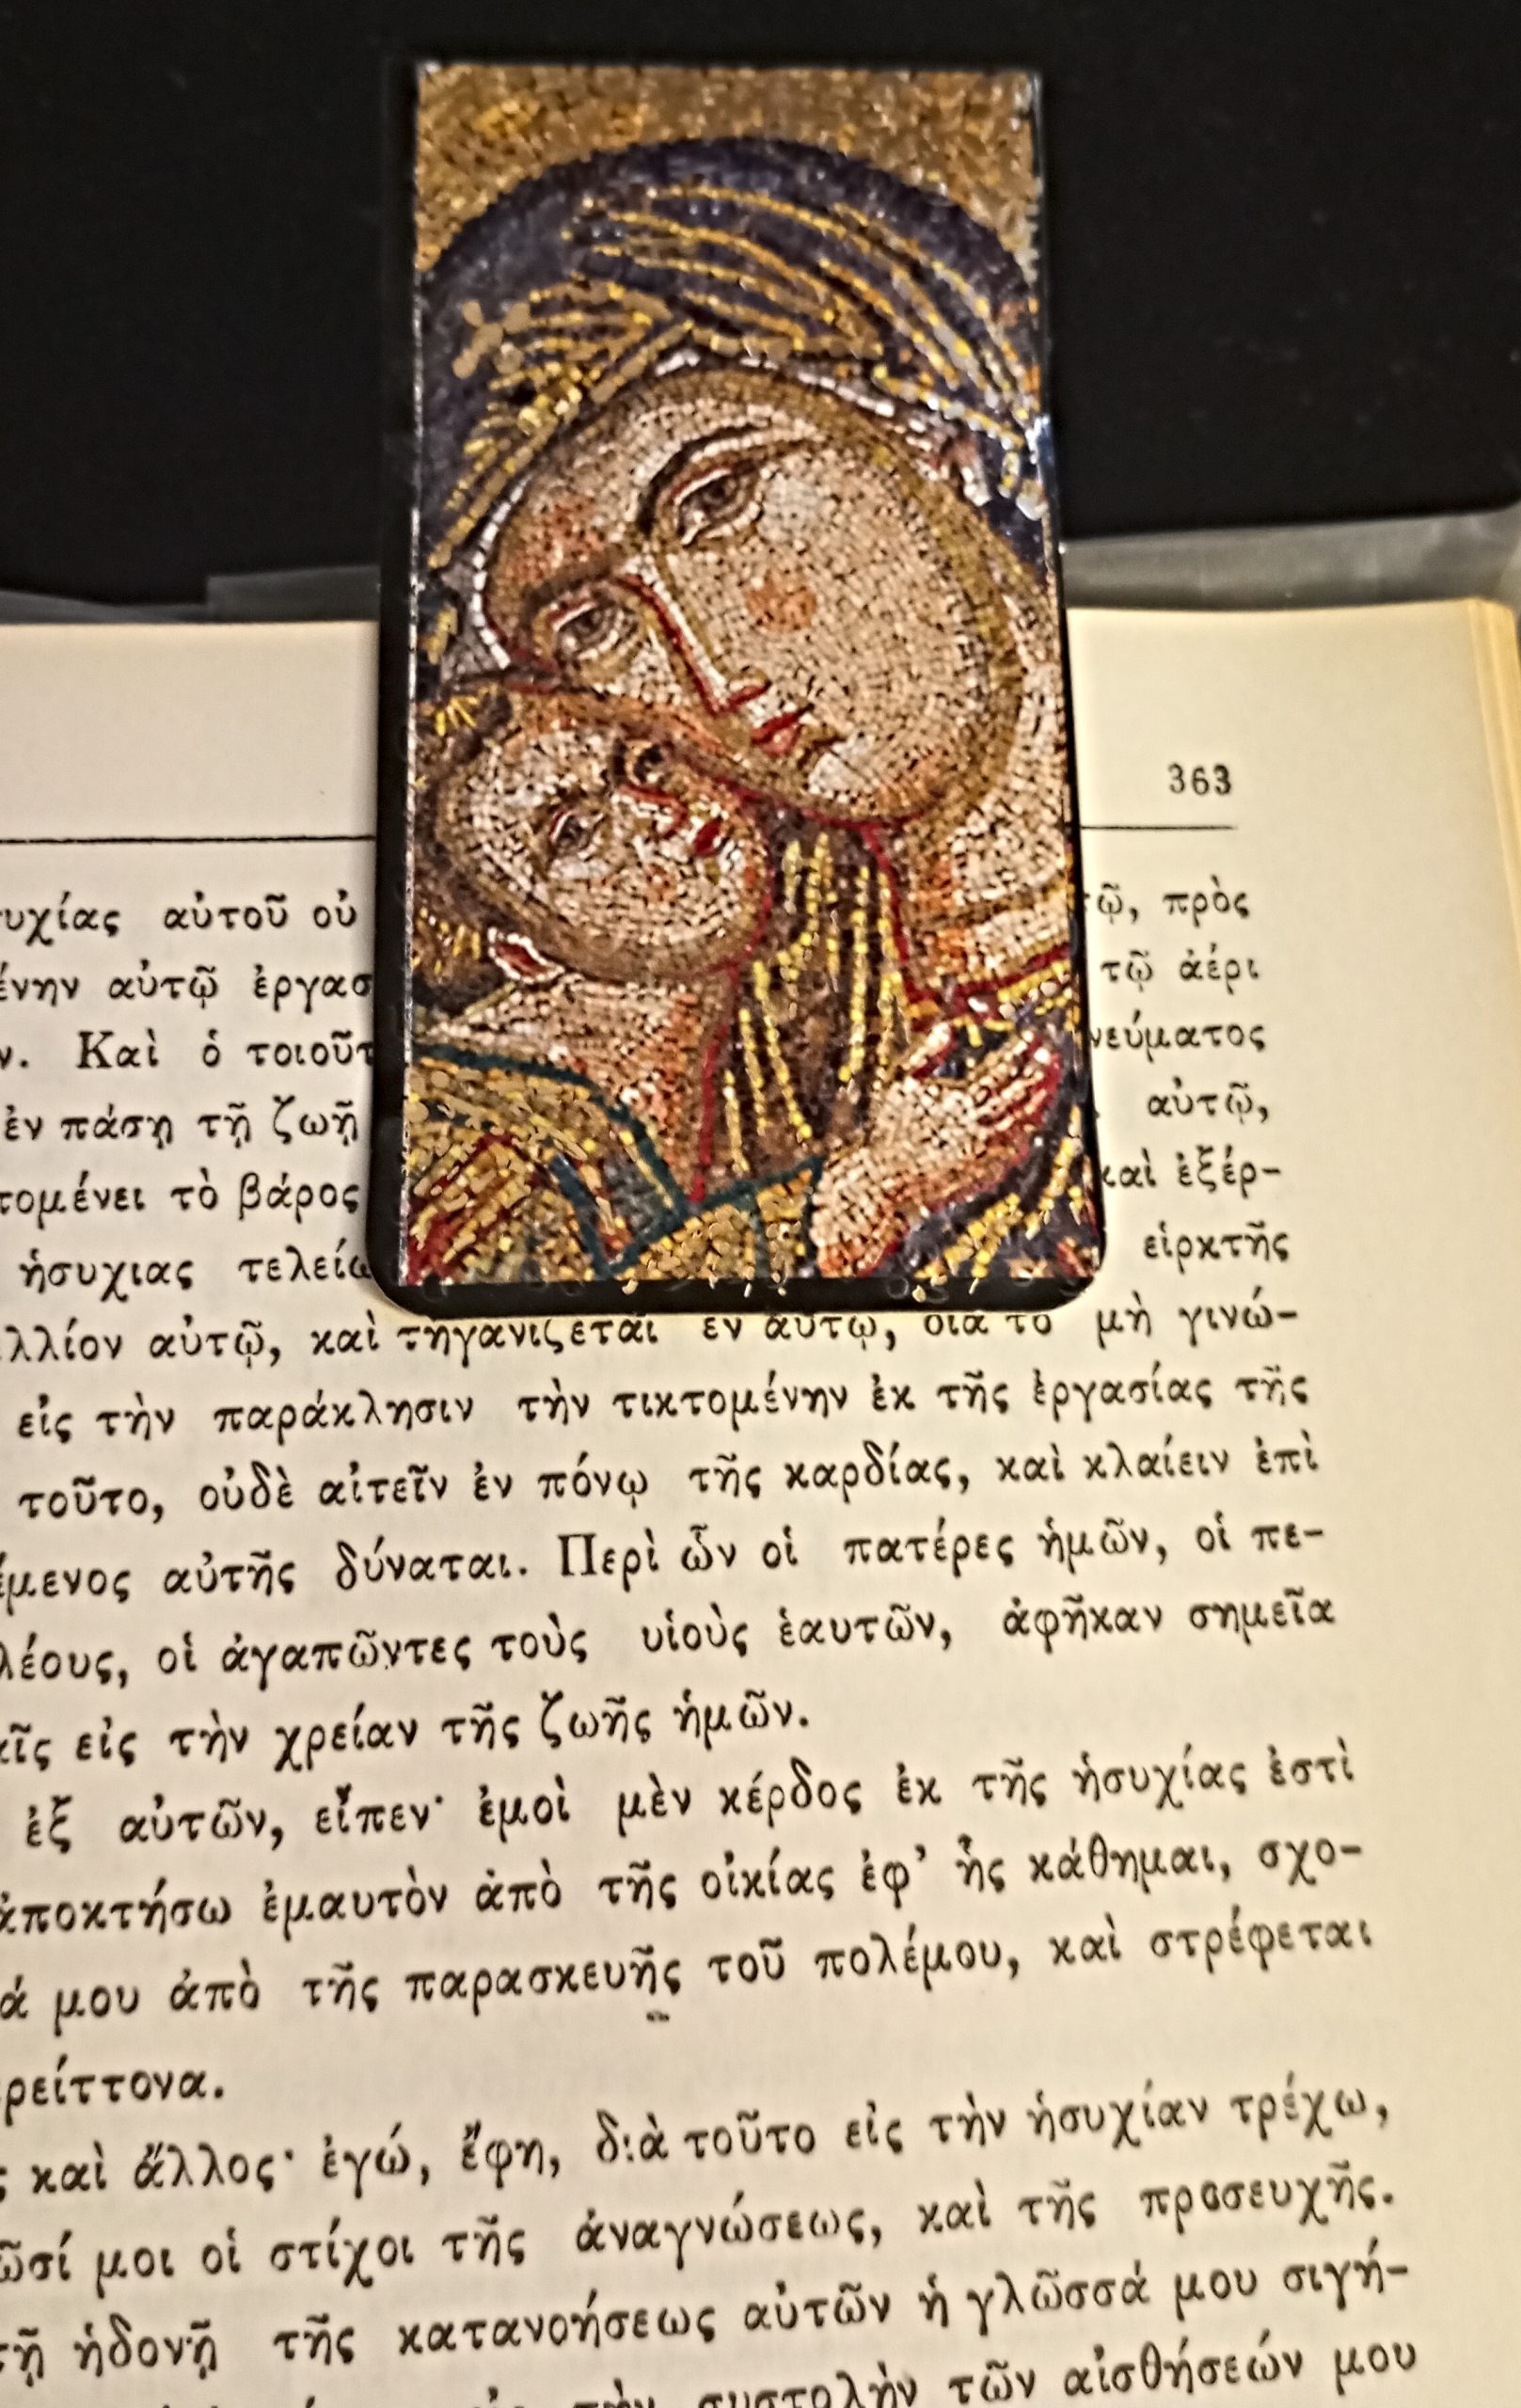 363
υχίας αὐτοῦ οὐ τῷ, πρὸς
ένην αὐτῷ ἐργασ τῷ ἀέρι
ν. Καὶ ὁ τοιοῦτ νεύματος
ἐν πάσῃ τῇ ζωῇ αὐτῷ,
τομένει τὸ βάρος καὶ ἐξέρ-
ἡσυχιας τελείω εἱρκτῆς
λλίον αὐτῷ, καὶ τηγανίζεται ἐν αὐτῷ, διὰ τὸ μὴ γινώ-
εἰς τὴν παράκλησιν τὴν τικτομένην ἐκ τῆς ἐργασίας τῆς
τοῦτο, οὐδὲ αἰτεῖν ἐν πόνῳ τῆς καρδίας, καὶ κλαίειν ἐπὶ
έμενος αὐτῆς δύναται. Περὶ ὧν οἱ πατέρες ἡμῶν, οἱ πε-
λέους, οἱ ἀγαπῶντες τοὺς υἱοὺς ἑαυτῶν, ἀφῆκαν σημεῖα
κῖς εἰς τὴν χρείαν τῆς ζωῆς ἡμῶν.
ἐξ αὐτῶν, εἶπεν· ἐμοὶ μὲν κέρδος ἐκ τῆς ἡσυχίας ἐστὶ
ἀποκτήσω ἐμαυτὸν ἀπὸ τῆς οἰκίας ἐφ' ἧς κάθημαι, σχο-
ά μου ἀπὸ τῆς παρασκευῆς τοῦ πολέμου, καὶ στρέφεται
ρείττονα.
ς καὶ ἄλλος· ἐγώ, ἔφη, διὰ τοῦτο εἰς τὴν ἡσυχίαν τρέχω,
ῶσί μοι οἱ στίχοι τῆς ἀναγνώσεως, καὶ τῆς προσευχῆς.
τῇ ἡδονῇ τῆς κατανοήσεως αὐτῶν ἡ γλῶσσά μου σιγή-
τὴν συστολὴν τῶν αἰσθήσεών μου